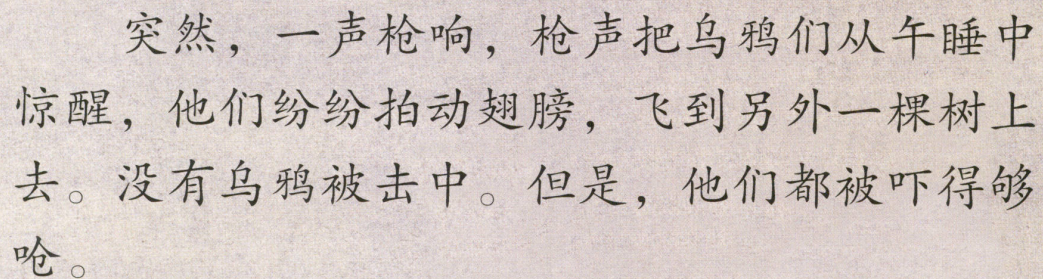 突然，一声枪响，枪声把乌鸦们从午睡中
惊醒，他们纷纷拍动翅膀，飞到另外一棵树上
去。没有乌鸦被击中。但是，他们都被吓得够
呛。